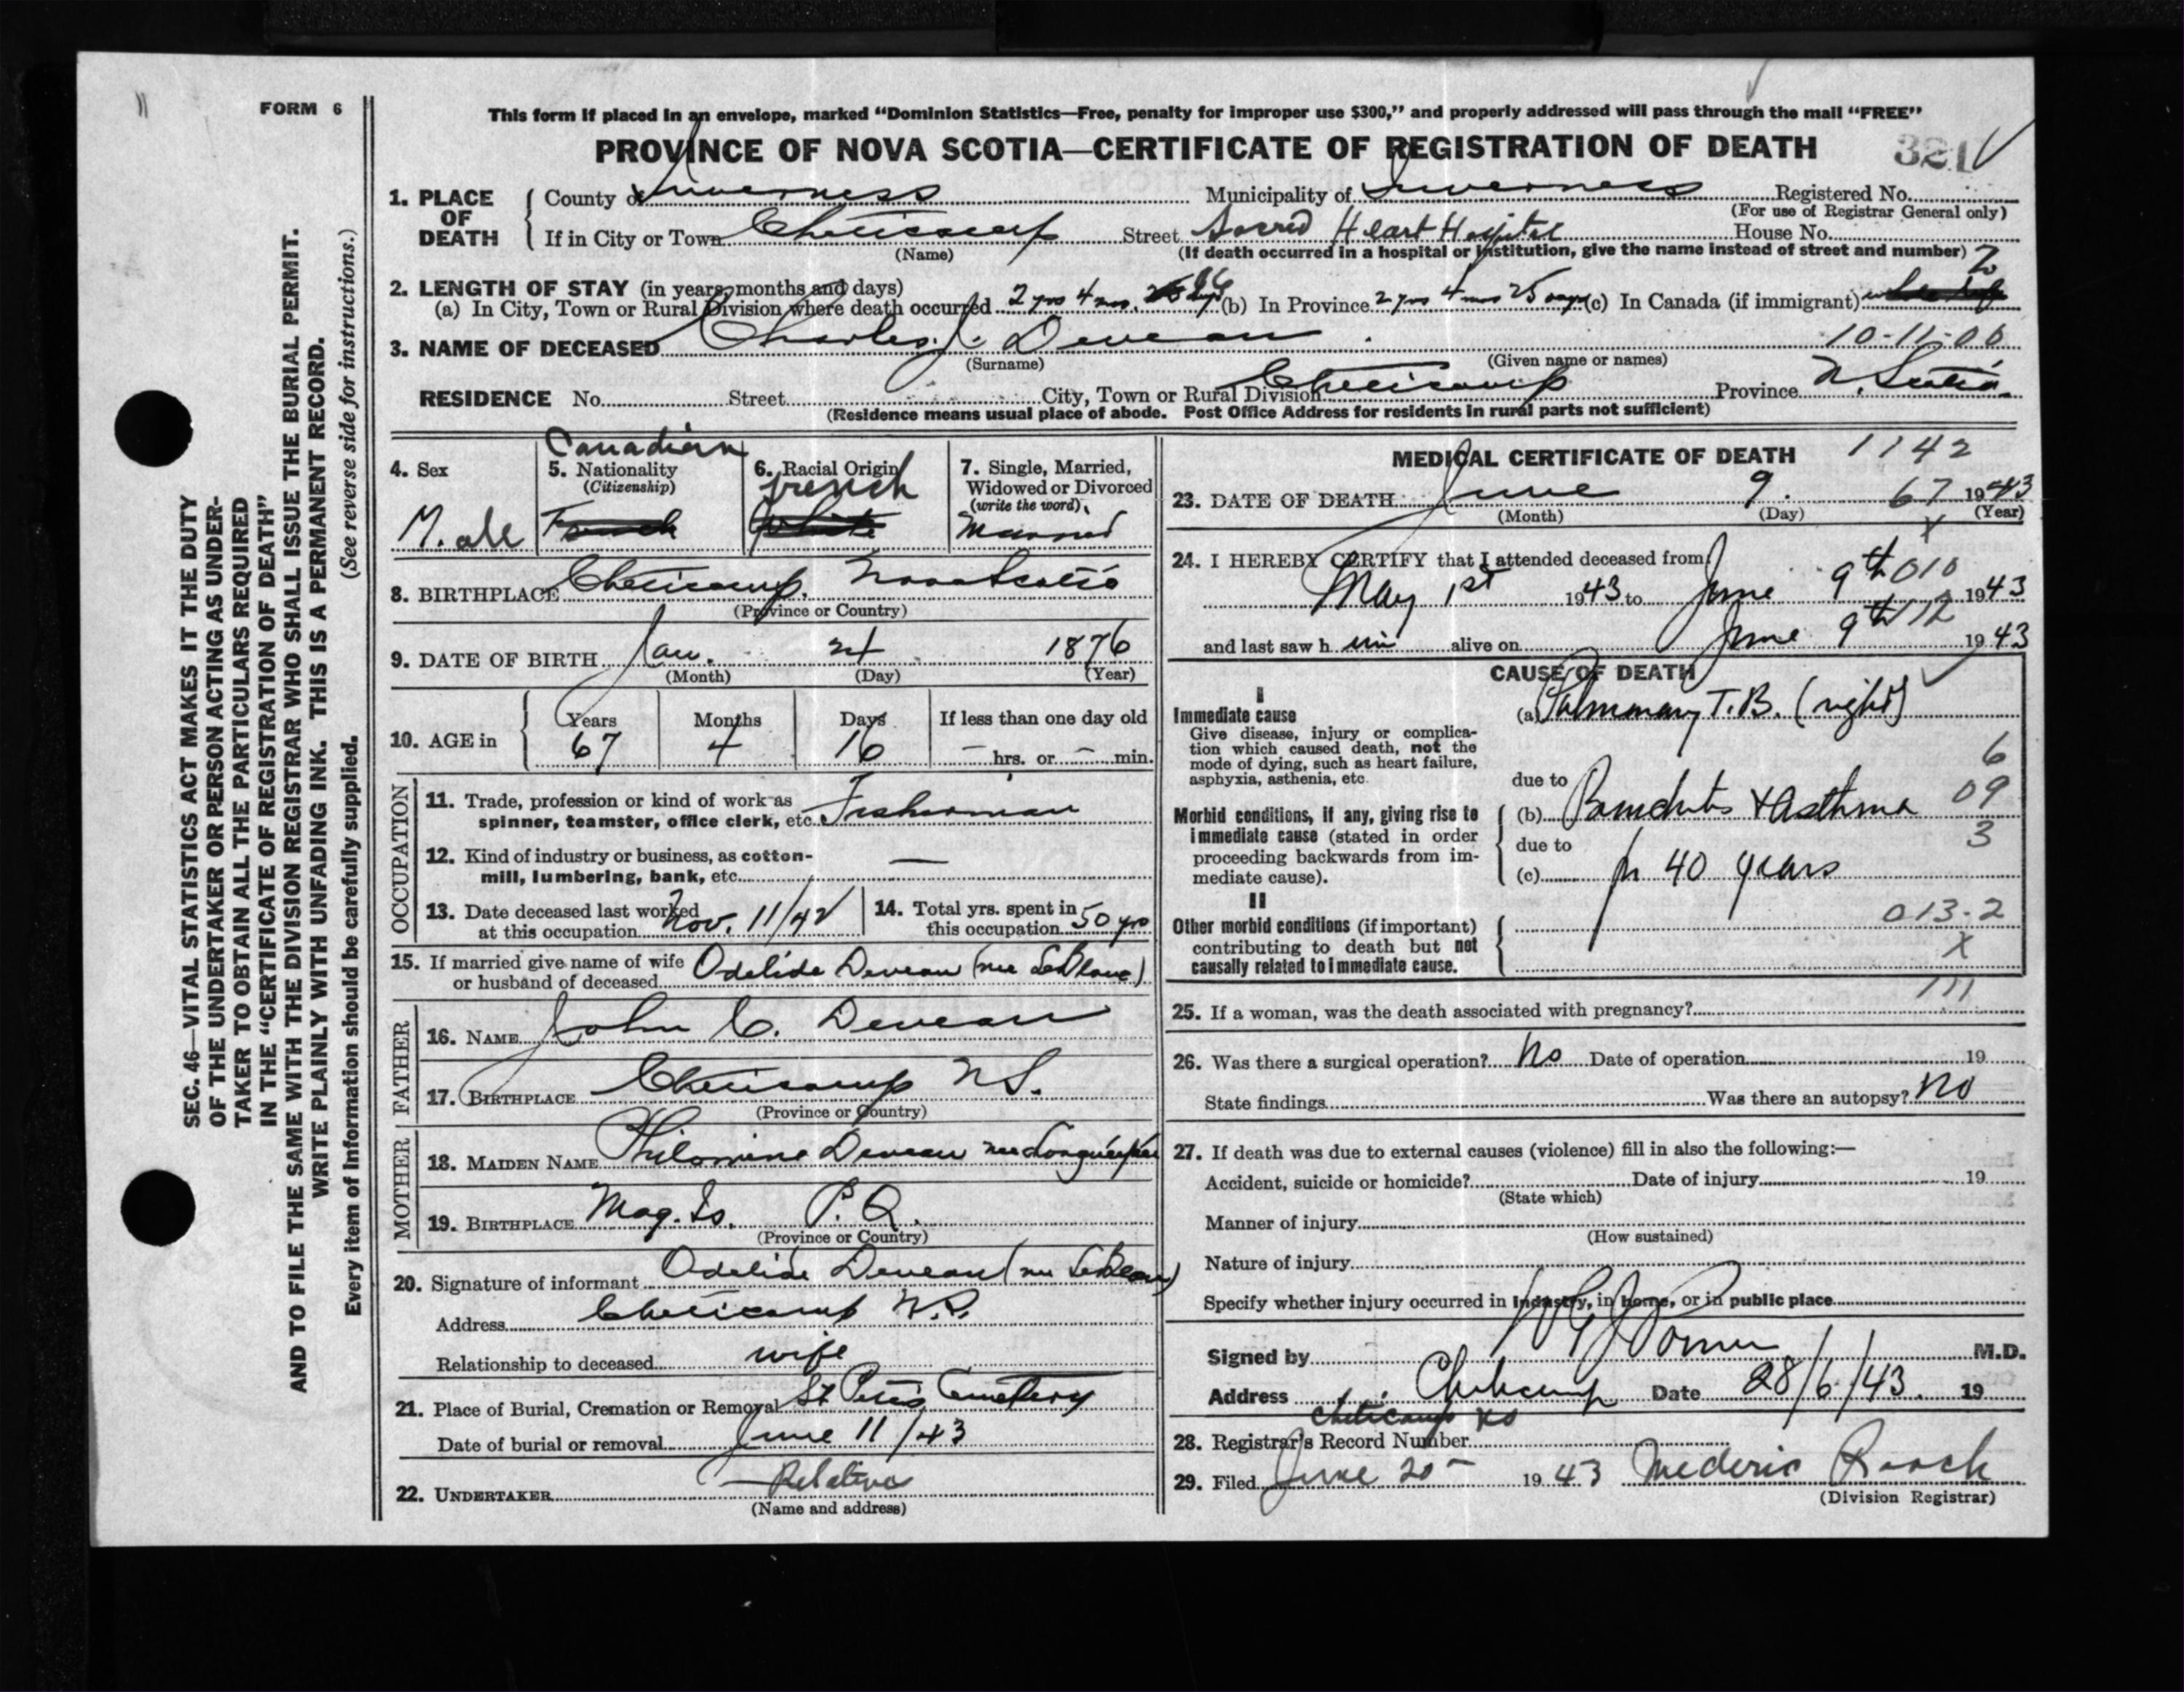 FORM 6
This form if placed in an envelope, marked “Dominion Statistics—Free, penalty for improper use $300,” and properly addressed will pass through the mail “FREE”
PROVINCE OF NOVA SCOTIA—CERTIFICATE OF REGISTRATION OF DEATH 321
1. PLACE OF DEATH County of Inverness Municipality of Inverness Registered No.
(For use of Registrar General only)
If in City or Town Cheticamp Street Sacred Heart Hospital House No.
(Name) (If death occurred in a hospital or institution, give the name instead of street and number)
2. LENGTH OF STAY (in years, months and days)
(a) In City, Town or Rural Division where death occurred 2 yrs 4 mos. (b) In Province 2 yrs 4 mos 25 days (c) In Canada (if immigrant)
3. NAME OF DECEASED Charles J. Deveau 10-11-06
(Surname) (Given name or names)
RESIDENCE No. Street City, Town or Rural Division Cheticamp Province N. Scotia
(Residence means usual place of abode. Post Office Address for residents in rural parts not sufficient)
4. Sex Male
5. Nationality (Citizenship) Canadian French
6. Racial Origin French White
7. Single, Married, Widowed or Divorced (write the word) Married
8. BIRTHPLACE Cheticamp. Nova Scotia
(Province or Country)
9. DATE OF BIRTH Jan. 24 1876
(Month) (Day) (Year)
10. AGE in Years 67 Months 4 Days 16 If less than one day old — hrs. or — min.
OCCUPATION
11. Trade, profession or kind of work as spinner, teamster, office clerk, etc. Fisherman
12. Kind of industry or business, as cotton-mill, lumbering, bank, etc. —
13. Date deceased last worked at this occupation Nov. 11/42
14. Total yrs. spent in this occupation 50 yrs
15. If married give name of wife or husband of deceased Odelide Deveau (nee LeBlanc)
FATHER
16. NAME John C. Deveau
17. BIRTHPLACE Cheticamp N.S.
(Province or Country)
MOTHER
18. MAIDEN NAME Philomine Deveau nee
19. BIRTHPLACE Mag. Is. P.Q.
(Province or Country)
20. Signature of informant Odelide Deveau (nee LeBlanc)
Address Cheticamp N.S.
Relationship to deceased wife
21. Place of Burial, Cremation or Removal St Peter's Cemetery
Date of burial or removal June 11/43
22. UNDERTAKER Relative
(Name and address)
MEDICAL CERTIFICATE OF DEATH 1142
23. DATE OF DEATH June 9. 67 1943
(Month) (Day) (Year)
24. I HEREBY CERTIFY that I attended deceased from
May 1st 1943 to June 9th 1943
010
and last saw him alive on June 9th 1943
112
CAUSE OF DEATH
I
Immediate cause
Give disease, injury or complication which caused death, not the mode of dying, such as heart failure, asphyxia, asthenia, etc.
(a) Pulmonary T.B. (right)
6
due to
Morbid conditions, if any, giving rise to immediate cause (stated in order proceeding backwards from immediate cause).
(b) Bronchitis & Asthma 09
due to 3
(c) for 40 years
II
Other morbid conditions (if important) contributing to death but not causally related to immediate cause.
013-2
X
111
25. If a woman, was the death associated with pregnancy?
26. Was there a surgical operation? No Date of operation 19
State findings Was there an autopsy? No
27. If death was due to external causes (violence) fill in also the following:—
Accident, suicide or homicide? Date of injury 19
(State which)
Manner of injury
(How sustained)
Nature of injury
Specify whether injury occurred in Industry, in home, or in public place
Signed by M.D.
Address Cheticamp Date 28/6/43. 19
Cheticamp NS
28. Registrar's Record Number
29. Filed June 20 1943 Mederic Roach
(Division Registrar)
SEC. 46—VITAL STATISTICS ACT MAKES IT THE DUTY
OF THE UNDERTAKER OR PERSON ACTING AS UNDER-
TAKER TO OBTAIN ALL THE PARTICULARS REQUIRED
IN THE “CERTIFICATE OF REGISTRATION OF DEATH”
AND TO FILE THE SAME WITH THE DIVISION REGISTRAR WHO SHALL ISSUE THE BURIAL PERMIT.
WRITE PLAINLY WITH UNFADING INK. THIS IS A PERMANENT RECORD.
(See reverse side for instructions.)
Every item of Information should be carefully supplied.